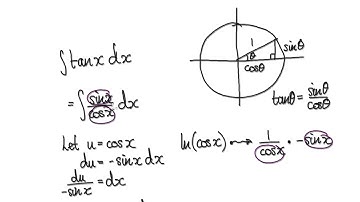 ∫tanx dx
= ∫ sinx/cosx dx
Let u = cosx
du = -sinx dx
du/-sinx = dx
1
θ
sinθ
cosθ
tanθ = sinθ/cosθ
ln(cosx) ⟿ 1/cosx · -sinx